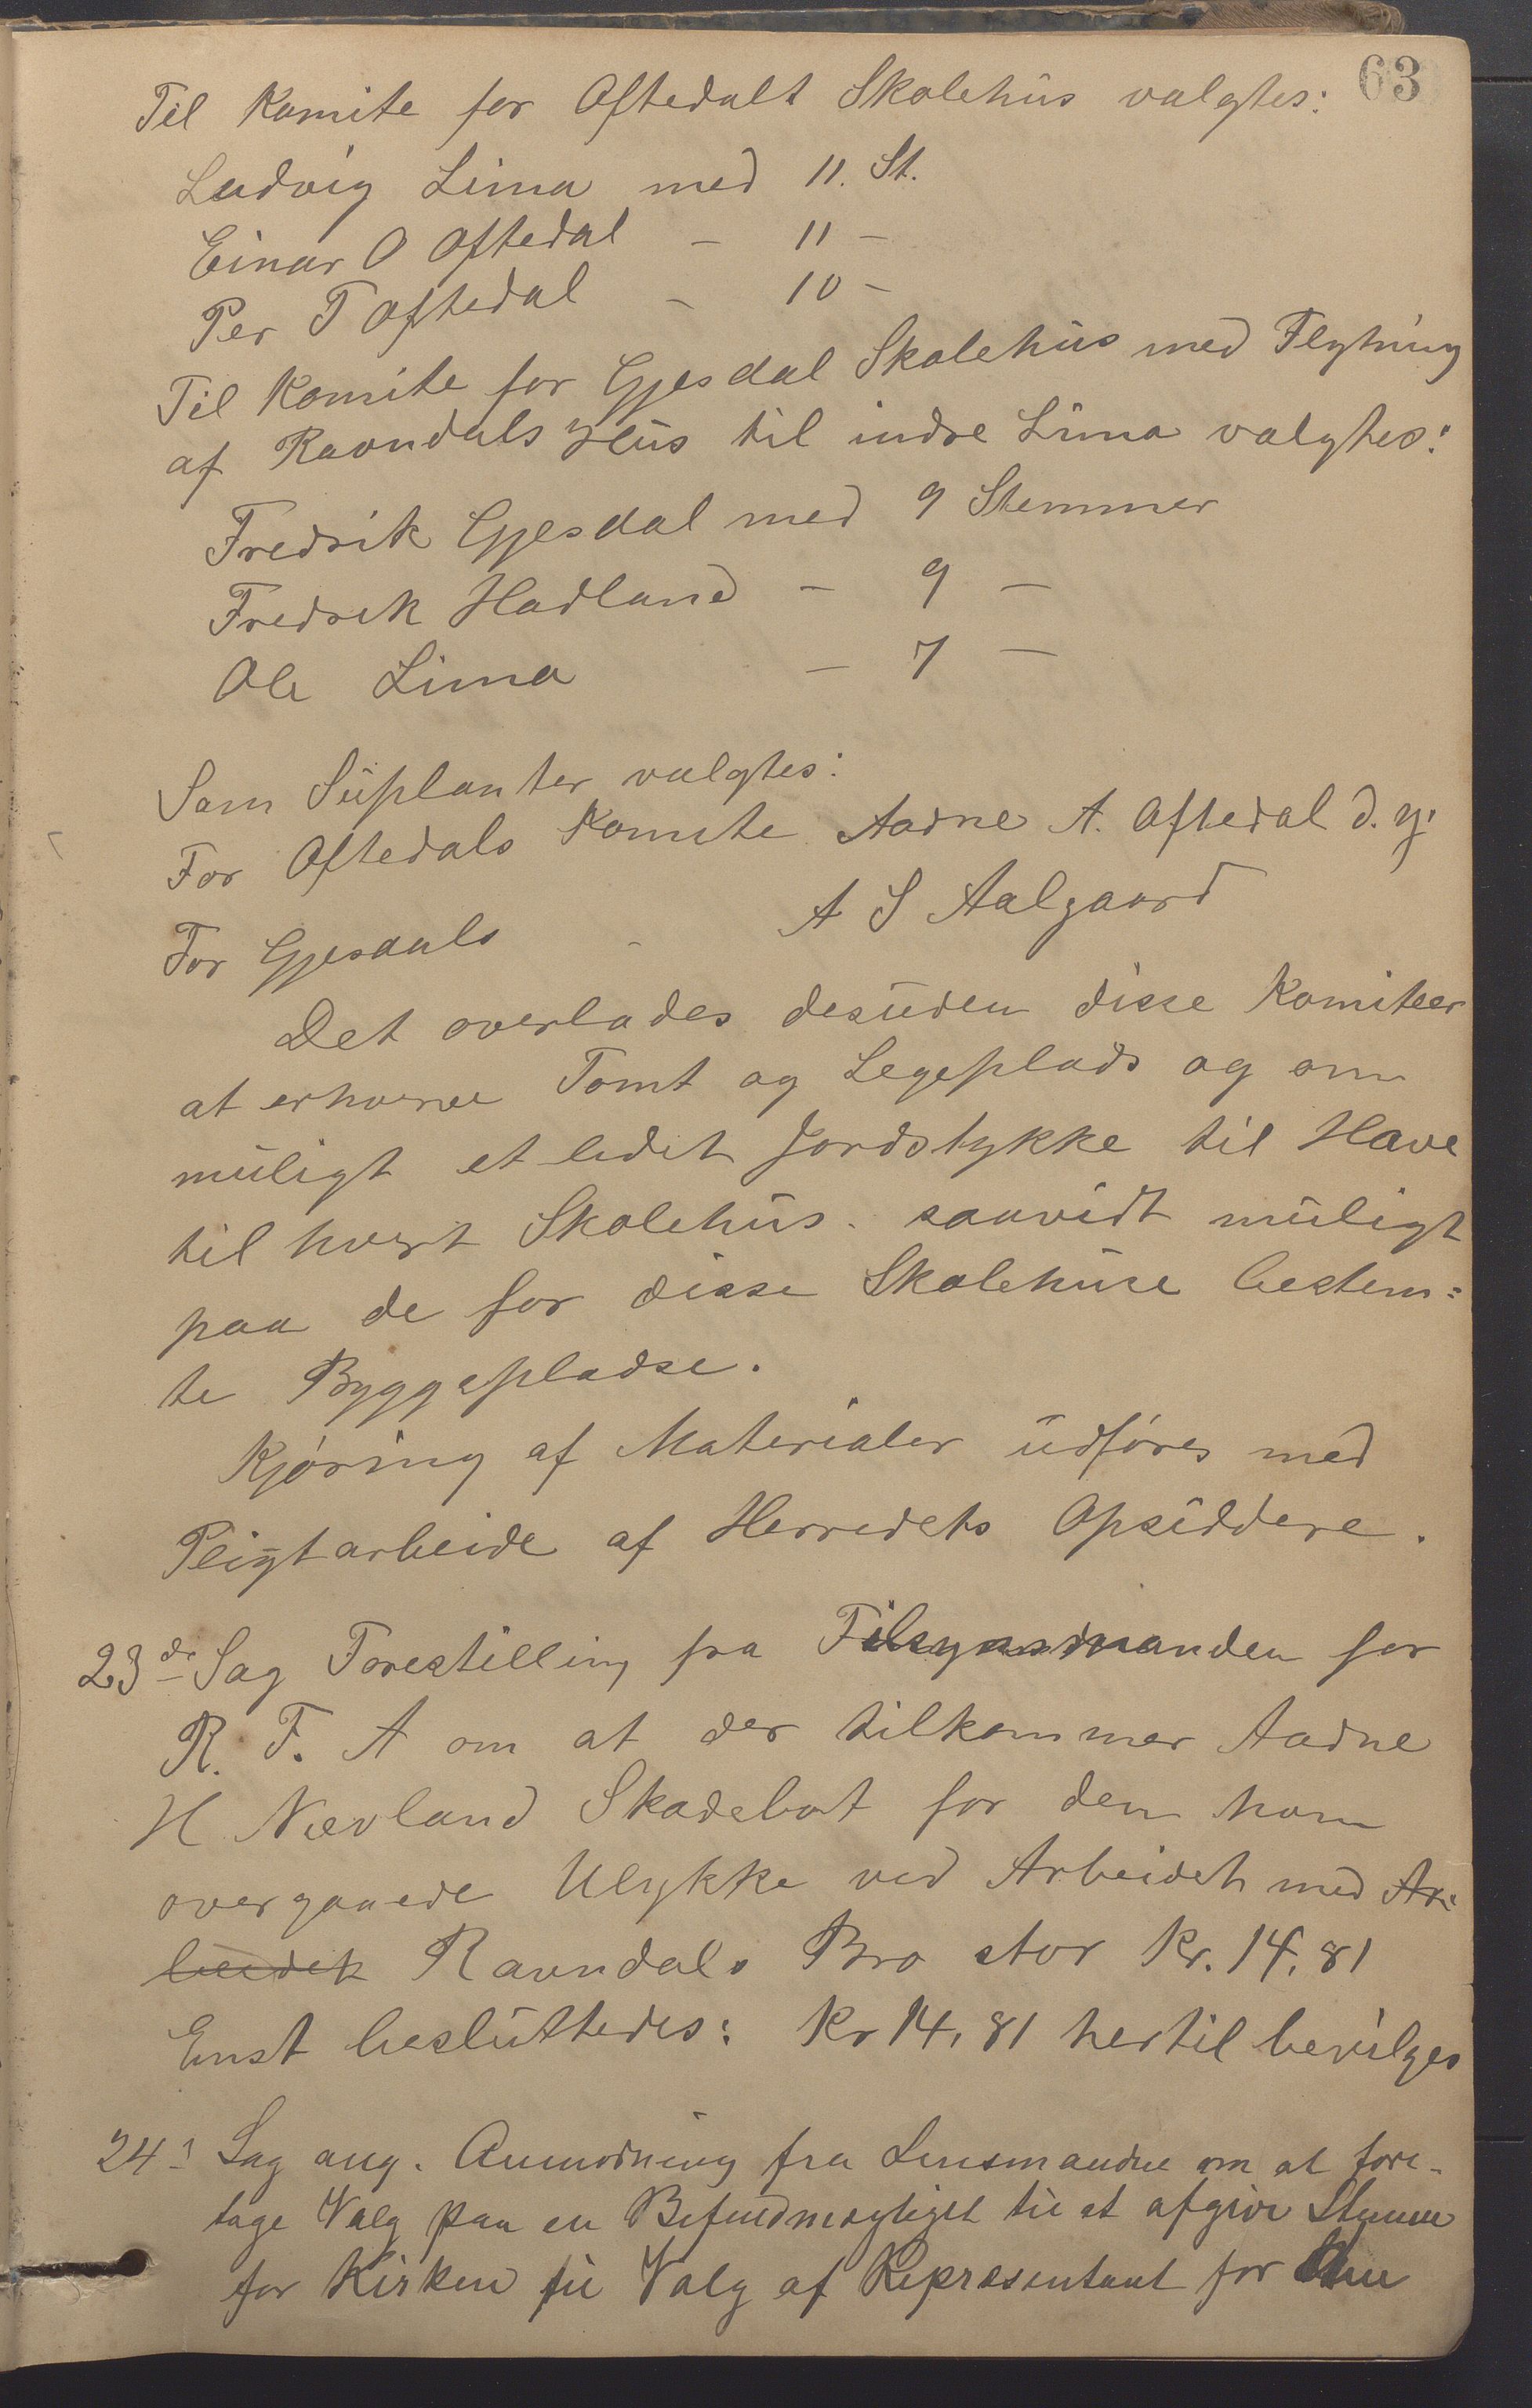 63
Til Komite for Oftedals Skolehus valgtes:
Ludvig Lima med 11. St.
Einar O Oftedal — 11 —
Per T Oftedal — 10 —
Til Komite for Gjesdal Skolehus med Flytning
af Ravndals Hus til indre Lima valgtes:
Fredrik Gjesdal med 9 Stemmer
Fredrik Hadland — 9 —
Ole Lima — 7 —
Som Suplanter valgtes:
For Oftedals Komite Aadne A. Oftedal d. y.
For Gjesdals — A S Aalgaard
Det overlades desuden disse Komiteer
at erhverve Tomt og Legeplads og om
muligt et lidet Jordstykke til Have
til hvert Skolehus. saavidt muligt
paa de for disse Skolehuse bestem=
te Byggepladse.
Kjøring af Materialer udføres med
Pligtarbeide af Herredets Opsiddere.
23de Sag Forestilling fra Tilsynsmanden for
R. F. A om at der tilkommer Aadne
H Nævland Skadebot for den ham
overgaaede Ulykke ved Arbeidet med Ar=
beidet Ravndals Bro stor Kr. 14,81
Enst besluttedes: Kr 14,81 hertil bevilges
24. Sag ang. Anmodning fra Lensmanden om at fore-
tage Valg paa en Befuldmægtiget til at afgive Stemme
for Kirken til Valg af Repræsentant for